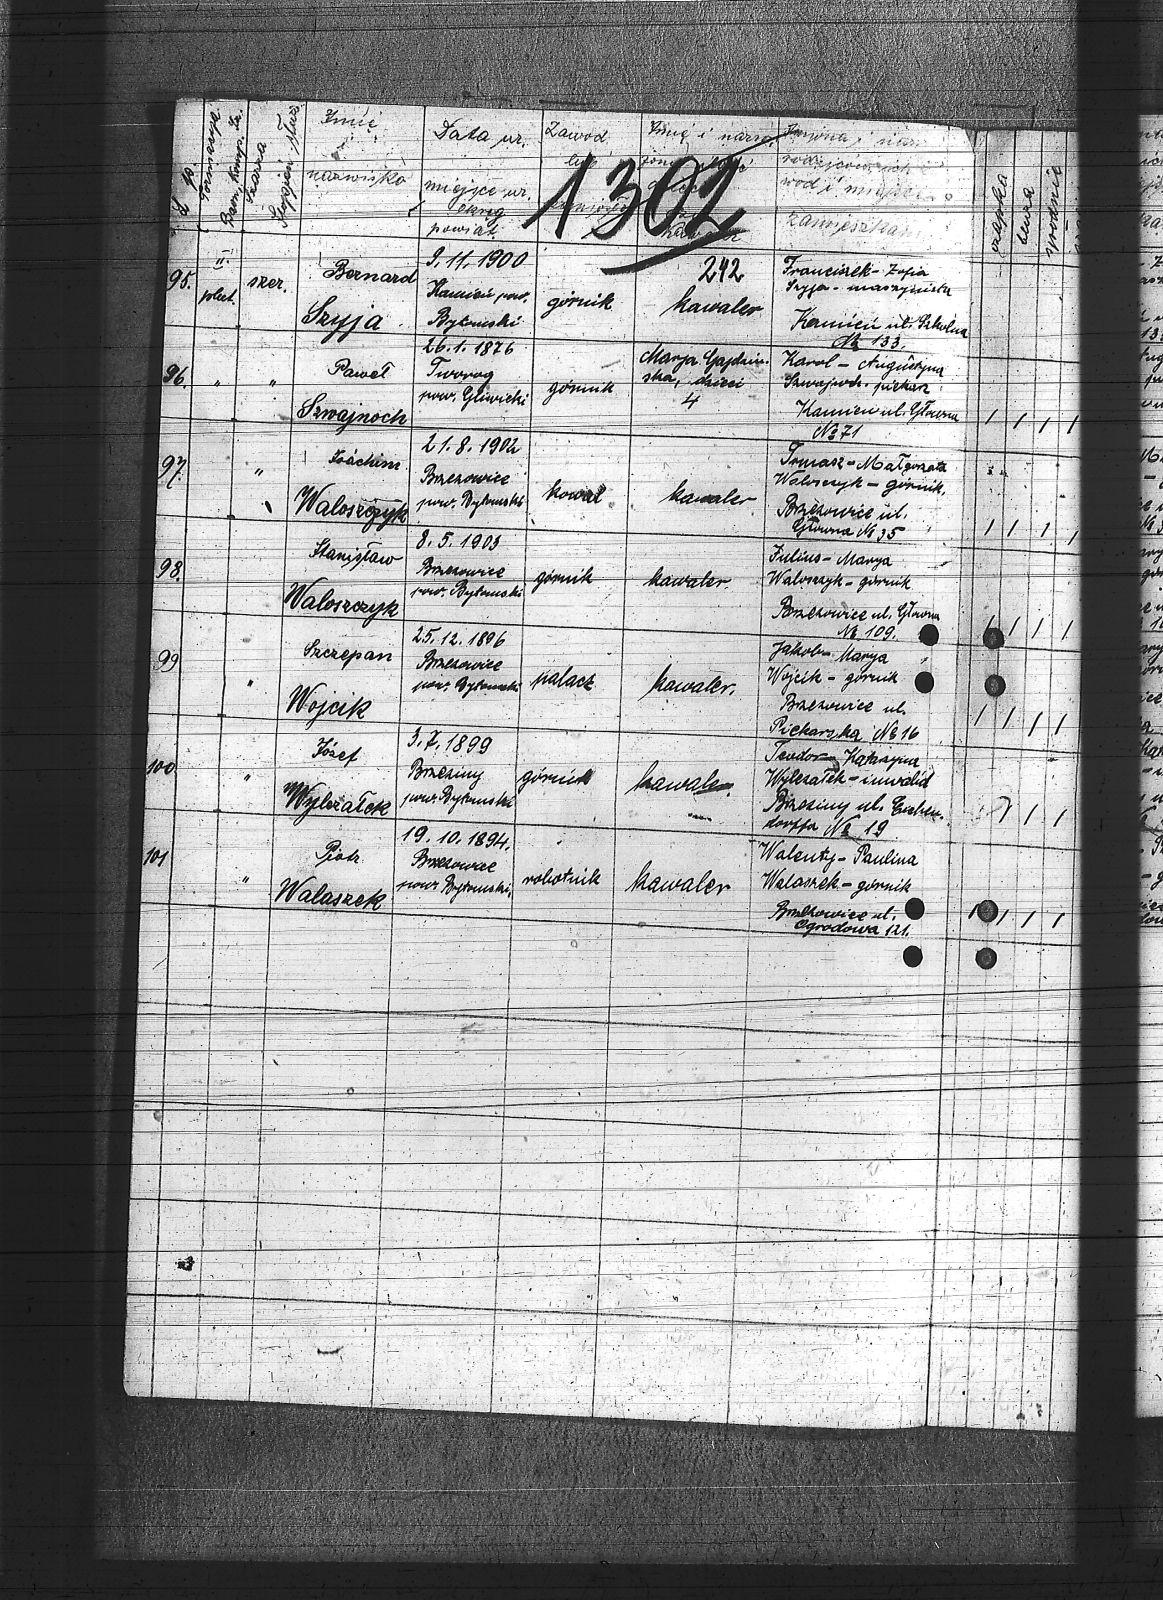 Imię
nazwisko
Data ur.
miejsce ur.
okręg
powiat
Zawód
lub
Imię i nazw.
żony
dzieci
Imiona i nazw.
rodziców
zawód i miejsce
zamieszkania
czapka
bluza
spodnie
1302
242
95.
II.
plut.
szer.
Bernard
Szyja
9.11.1900
Kamień pow.
Bytomski
górnik
kawaler
Franciszek - Zofia
Szyja - maszynista
Kamień ul. Szkolna
№ 133.
96.
"
"
Paweł
Szwajnoch
26.1.1876
Tworog
pow. Gliwicki
górnik
Marja Gajdzin-
ska, dzieci
4
Karol - Augustyna
Szwajnoch piekarz
Kamień ul. Głowna
№ 71
97.
"
Joachim
Waloszczyk
21.8.1902
Brzezowice
pow. Bytomski
kowal
kawaler
Tomasz - Małgorzata
Waloszczyk - górnik.
Brzezowice ul.
Głowna № 35
98.
Stanisław
Waloszczyk
8.5.1903
Brzezowice
pow. Bytomski
górnik
kawaler
Julius - Marya
Waloszczyk - górnik
Brzezowice ul. Głowna
№ 109.
99
"
Szczepan
Wojcik
25.12.1896
Brzezowice
pow. Bytomski
palacz
kawaler.
Jakob - Marya
Wojcik - górnik
Brzezowice ul.
Piekarska № 16
100
"
Józef
Wylezałek
3.7.1899
Brzeziny
pow. Bytomski
górnik
kawaler.
Teodor - Katarzyna
Wylezałek - inwalid
Brzeziny ul. Eichen-
dorffa № 19
101
"
Piotr
Walaszek
19.10.1894.
Brzezowice
pow. Bytomski.
robotnik
kawaler
Walenty - Paulina
Walaszek - górnik
Brzezowice ul.
Ogrodowa 121.